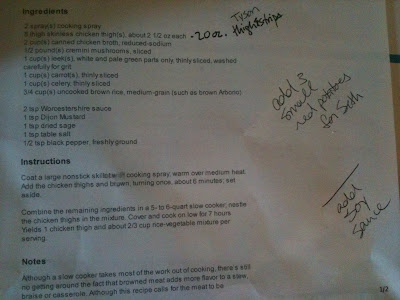 Ingredients
2 spray(s) cooking spray
8 thigh skinless chicken thigh(s), about 2 1/2 oz each
- 20 oz. Tyson
thigh strips
2 cup(s) canned chicken broth, reduced-sodium
1/2 pound(s) cremini mushrooms, sliced
1 cup(s) leek(s), white and pale green parts only, thinly sliced, washed
carefully for grit
1 cup(s) carrot(s), thinly sliced
1 cup(s) celery, thinly sliced
3/4 cup(s) uncooked brown rice, medium-grain (such as brown Arborio)
2 tsp Worcestershire sauce
1 tsp Dijon Mustard
1 tsp dried sage
1 tsp table salt
1/2 tsp black pepper, freshly ground
add 3
small
red potatoes
for Seth
Instructions
Coat a large nonstick skillet with cooking spray; warm over medium heat.
Add the chicken thighs and brown, turning once, about 6 minutes; set
aside.
Combine the remaining ingredients in a 5- to 6-quart slow cooker; nestle
the chicken thighs in the mixture. Cover and cook on low for 7 hours.
Yields 1 chicken thigh and about 2/3 cup rice-vegetable mixture per
serving.
add
soy
sauce
Notes
Although a slow cooker takes most of the work out of cooking, there's still
no getting around the fact that browned meat adds more flavor to a stew,
braise or casserole. Although this recipe calls for the meat to be
1/2